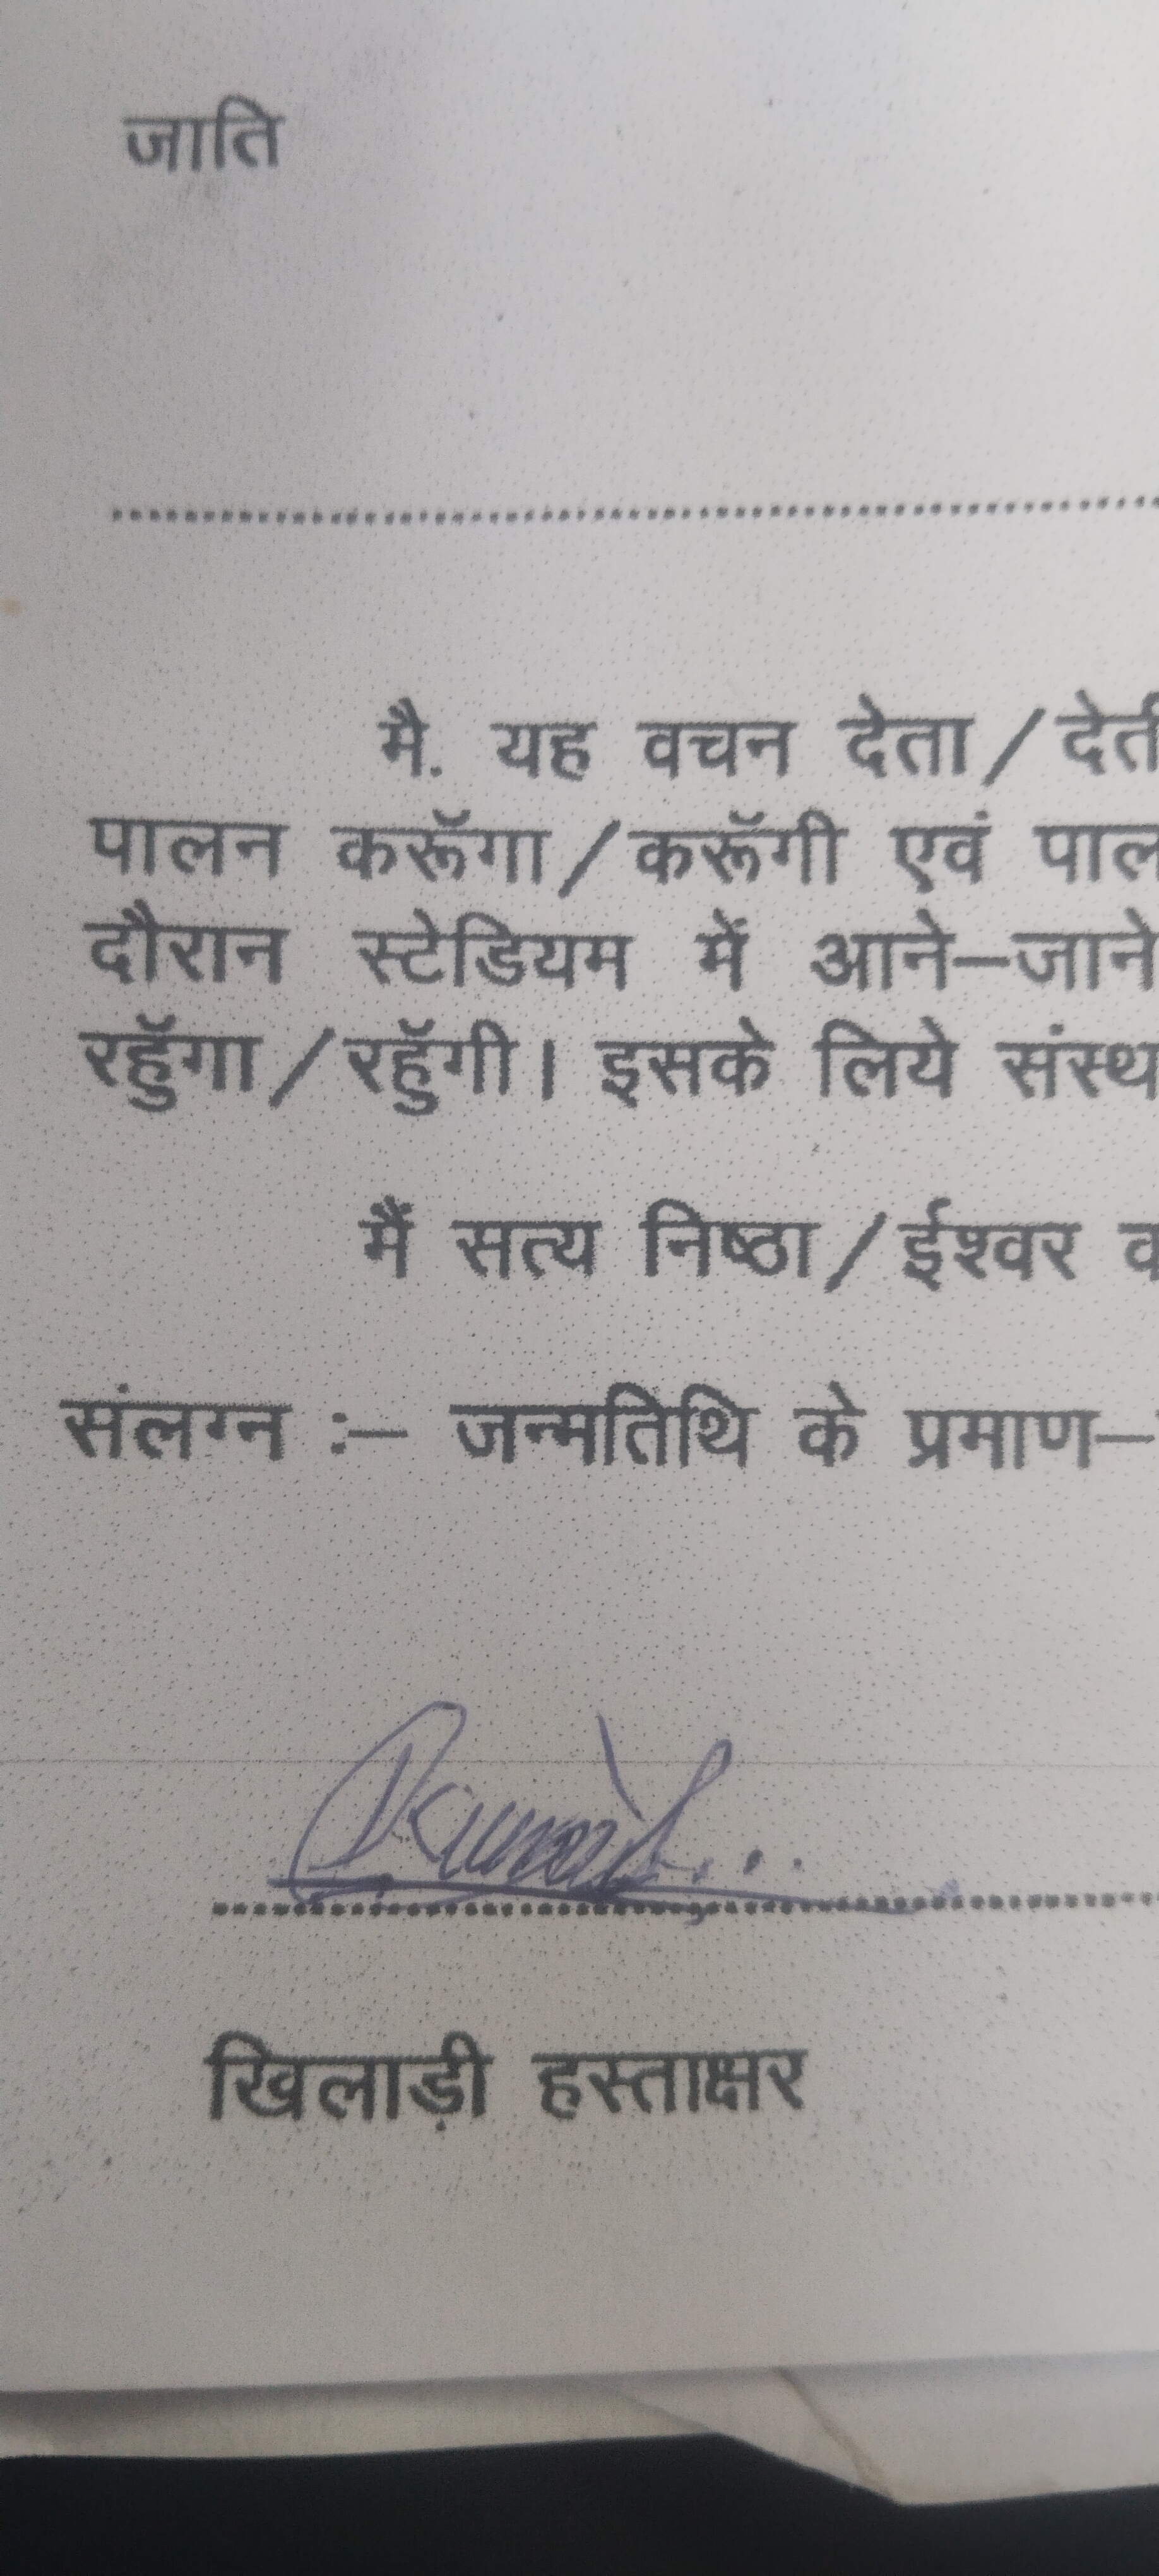 जाति
मै. यह वचन देता/देती
पालन करूॅगा/करूॅगी एवं पाल
दौरान स्टेडियम में आने–जाने
रहुॅगा/रहुॅगी। इसके लिये संस्थ
मैं सत्य निष्ठा/ईश्वर
संलग्न :– जन्मतिथि के प्रमाण–
खिलाड़ी हस्ताक्षर